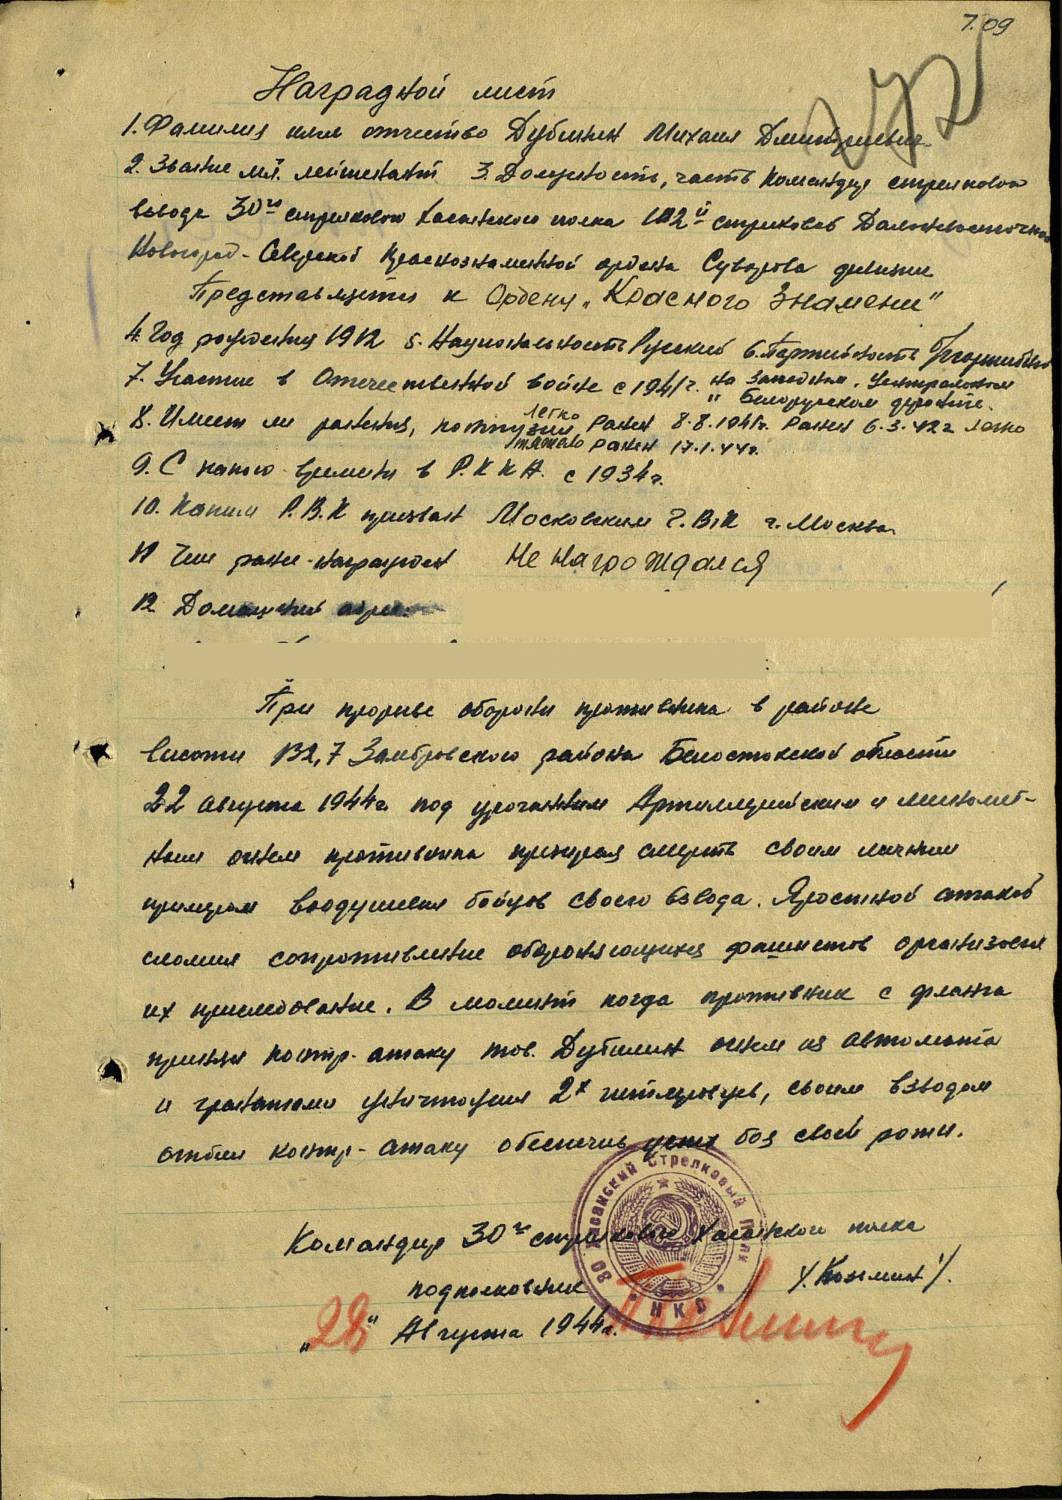 7.09
Наградной лист
1. Фамилия имя отчество Дубинин Михаил Дмитриевич
2. Звание мл. лейтенант 3. Должность, часть Командир стрелкового
взвода 30го стрелкового Хасанского полка 102й стрелковой Дальневосточной
Новгород-Северской Краснознаменной ордена Суворова дивизии
Представляется к Ордену „Красного Знамени"
4. Год рождения 1912 5. Национальность Русский 6. Партийность
7. Участие в Отечественной войне с 1941г. на Западном, Центральном
" Белорусском фронте.
8. Имеет ли ранения, контузии легко ранен 8.8.1941г. Ранен 6.3.42г легко
тяжело ранен 17.1.44г.
9. С какого времени в Р.К.К.А. с 1934г.
10. Каким Р.В.К призван Московским Г.В.К г. Москва
11 Чем ранее награжден Не награждался
12. Домашний адрес
При прорыве обороны противника в районе
высоты 132,7 Замбровского района Белостокской области
22 августа 1944г. под ураганным Артиллерийским и миномет-
ным огнем противника презирая смерть своим личным
примером воодушевил бойцов своего взвода. Яростной атакой
сломил сопротивление обороняющихся фашистов организовал
их преследование. В момент когда противник с фланга
принял контр-атаку тов. Дубинин огнем из автомата
и гранатами уничтожил 2х гитлеровцев, своим взводом
отбил контр-атаку обеспечив успех боя своей роты.
Командир 30го стрелкового Хасанского полка
подполковник /. Козьмин /.
„28" Августа 1944г.
30 Хасанский Стрелковый Полк
НКО